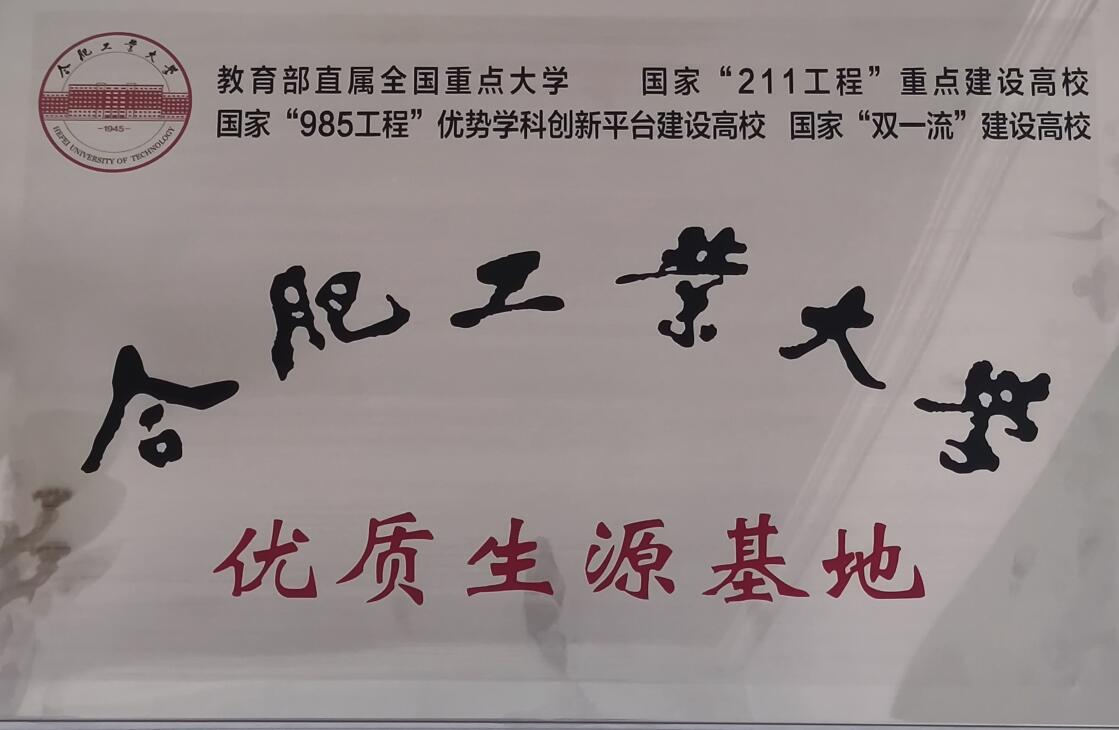 合肥工业大学
1945
HEFEI UNIVERSITY OF TECHNOLOGY
教育部直属全国重点大学 国家“211工程”重点建设高校
国家“985工程”优势学科创新平台建设高校 国家“双一流”建设高校
合肥工业大学
优质生源基地